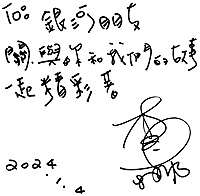 To: 銀河
與你和我們的故事
一起精彩著
2024.1.4